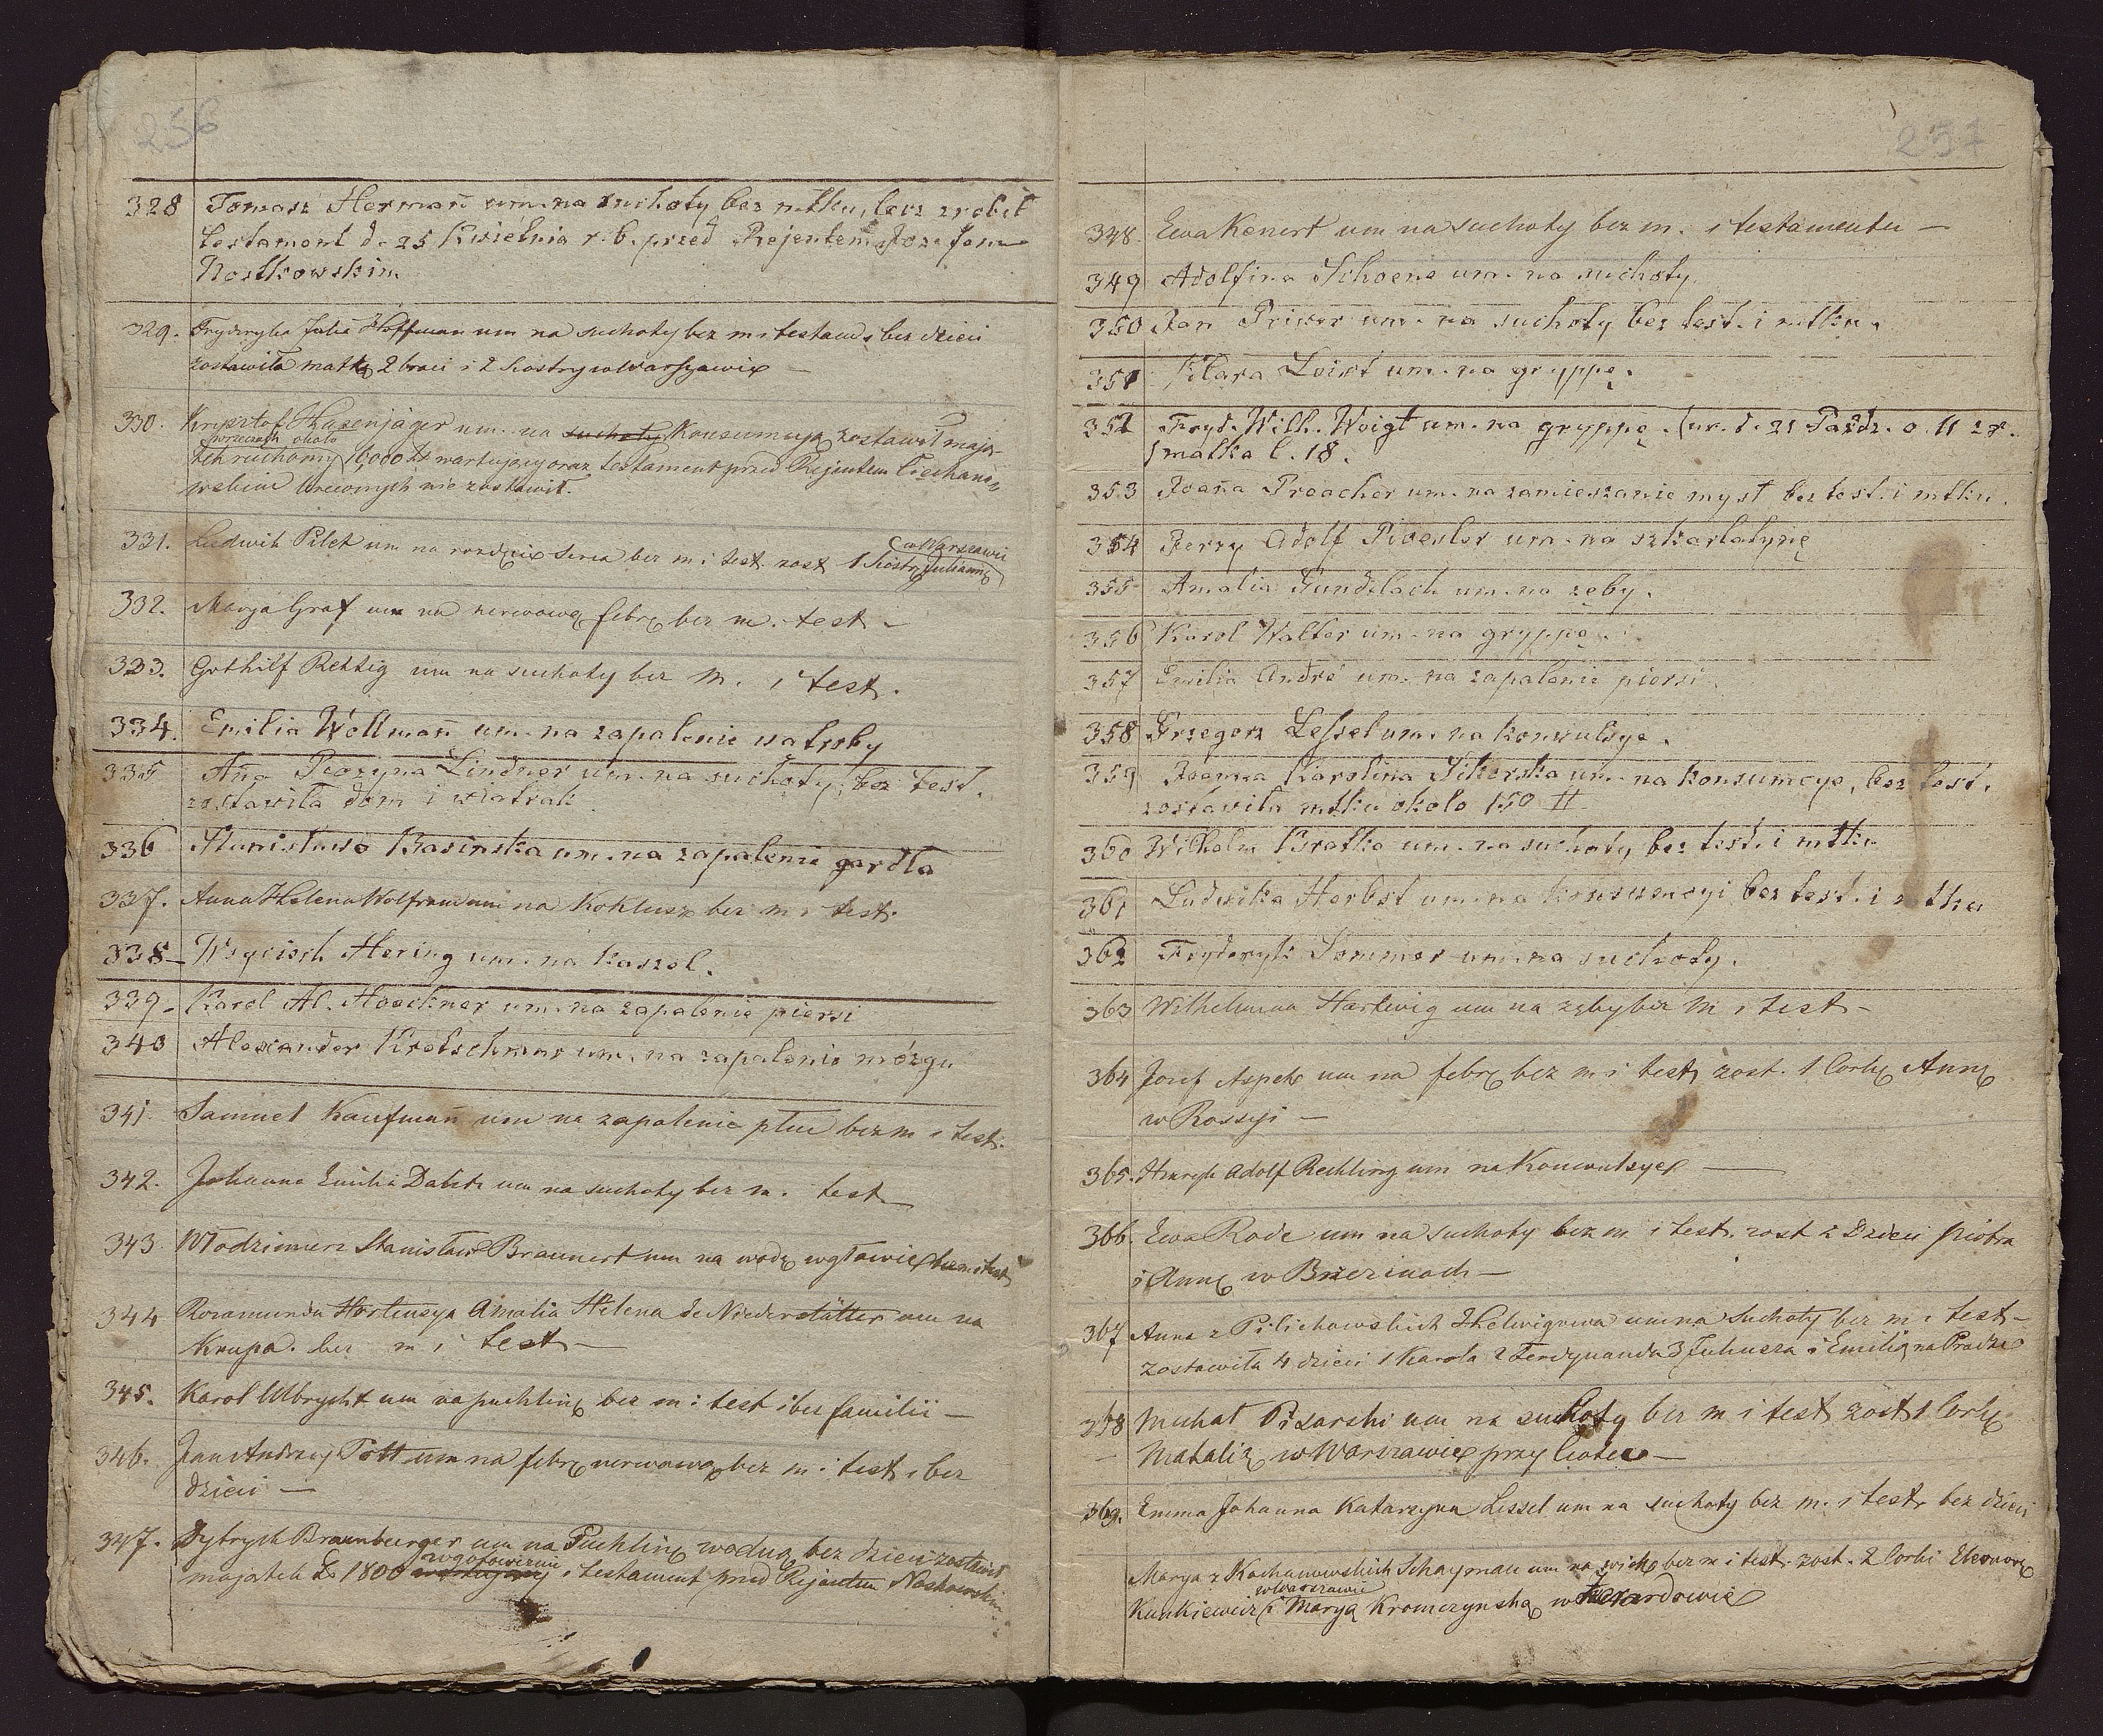 256
328 Tomasz Hermañ um. na suchoty bez mtku, lecz zrobił
testament d. 25 Kwietnia r. b. przed Rejentem Józefem
Noskowskim
329. Fryderyka Julia Hoffman um na suchoty bez m i testam i bez dzieci
zostawiła matkę 2 braci i 2 Siostry w Warszawie —
330. Krysztof Hasenjäger um. na suchoty Konsumują zostawił mają-
tek ruchomy 10,000 zł wartujący oraz testament przed Rejentem Ciechano-
wskim krewnych nie zostawił.
331. Ludwik Pilet um na rozdęcie serca bez m i test. zost 1 Siostrę Juliannę
w Warszawie
332. Marya Graf um na nerwową febrę bez m. test —
333. Gothilf Rettig um na suchoty bez m. i test.
334. Emilia Wellmañ um. na zapalenie wątroby
335 Aña Rozyna Lindner um. na suchoty, bez test.
zostawiła dom i wiatrak.
336 Stanisława Basinska um. na zapalenie gardła
337. Anna Helena Wolfram um na Koklusz bez m i test.
338 – Woyciech Hering um. na kaszel.
339 – Karol Al. Moeckner um. na zapalenie piersi
340 Alexander Kretschmar um. na zapalenie mózgu
341. Samuel Kaufmañ um na zapalenie płuc bez m i test.
342. Johanna Emilia um na suchoty bez m. test
343. Włodzimierz Stanisław Braunert um na wodę w głowie bez m i test
344 Rozamunda Hortensya Amalia Helena de Niederstätter um na
Krupa. bez m i test —
345. Karol Ulbrycht um na puchlinę bez m i test i bez familii —
346. Jan Andrzej Tott um na febrę nerwową bez m i test i bez
dzieci —
347. Dytrych Braunburger um na Puchlinę wodną bez dzieci zostawił
majątek Zł 1800 w gotowiznie i testament przed Rejentem Noskowskim
257
348. Ewa Kenert um na suchoty bez m. i testamentu —
349 Adolfina Schoene um. na suchoty.
350 Jan Priwer um. na suchoty bez test. i mtku.
351 Klara Loist um. na gryppę.
352 Fryd. Wilh. Voigt um. na gryppę. (ur. d. 21 Paźdz. o. 11
matka l. 18.
353 Joaña Preacher um. na zamieszanie mysł bez test. i mtku.
354 Jerzy Adolf um. na szkarlatynę
355 Amalia Gundelach um. na zęby.
356 Karol Walter um. na gryppę.
357 Emilia André um. na zapalenie piersi.
358 Grzegorz Lessel um. na konwulsye.
359 Joanna Karolina Sikorska um. na konsumcye, bez test.
zostawiła mtku około 150 zł
360 Wilhelm Bratke um. na suchoty bez test. i mtku
361 Ludwika Herbst um. na konsumcyi bez test. i mtku
362 Fryderyk Sommer um. na suchoty.
363 Wilhelmina Hartwig um na zęby bez m i test —
364 Józef Aspek um na febrę bez m i test, zost. 1 Corkę Annę
w Rossyi —
365. Henryk Adolf Rechling um na Konwulsye —
366. Ewa Rode um na suchoty bez m i test. zost 2 Dzieci Piotra
i Annę w Brzezinach —
367 Anna z Pilichowskich Helwigowa um na suchoty bez m i test —
zostawiła 4 dzieci 1 Karola 2 Ferdynanda 3 Juliusza i Emilię na Pradze
368 Michał Pisarski um na suchoty bez m i test zost 1 Corkę
Natalią w Warszawie przy Ciotce —
369. Emma Johanna Katarzyna Lessel um na suchoty bez m. i test. bez dzieci
Marya z Kochanowskich Schayman um na bez m i test. zost. 2 Corki Eleonorę
Kunkiewicz w Warszawie i Maryą Kromczynską w